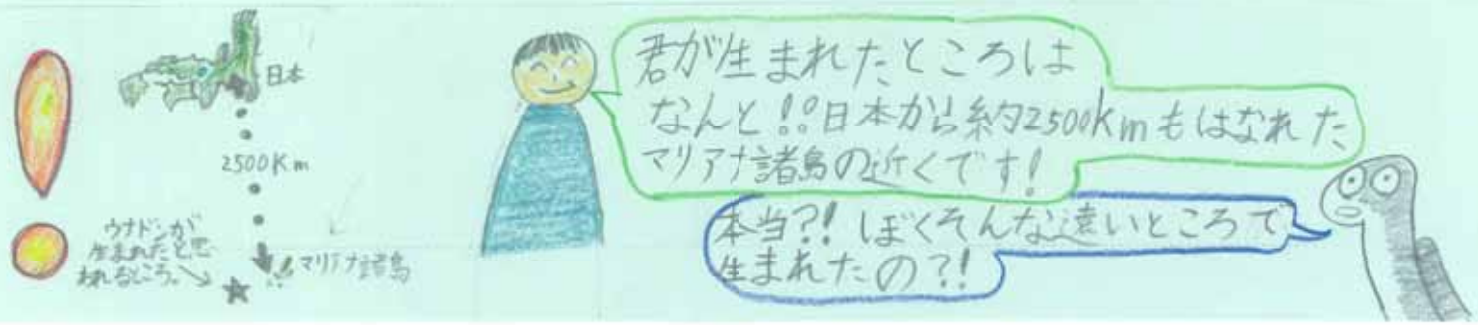 日本
2500Km
ウナドンが
生まれたと思
われるところ。
マリアナ諸島
君が生まれたところは
なんと!!日本から約2500kmもはなれた
マリアナ諸島の近くです!
本当?! ぼくそんな遠いところで
生まれたの?!